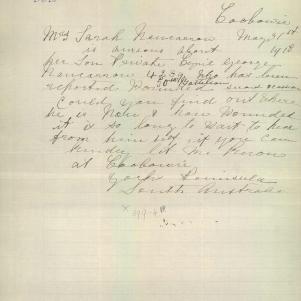 Coobowie
Mrs Sarah Nancarrow May 31st
is anxious about 1918
her Son Private Ernie George
Nancarrow 4539 who has been
50th Battalion
reported Wounded
Could you find out where
he is Now & how Wounded
it is so long to wait to hear
from him but if you can
kindly let me know
at Coobowie
York Peninsula
South Australia